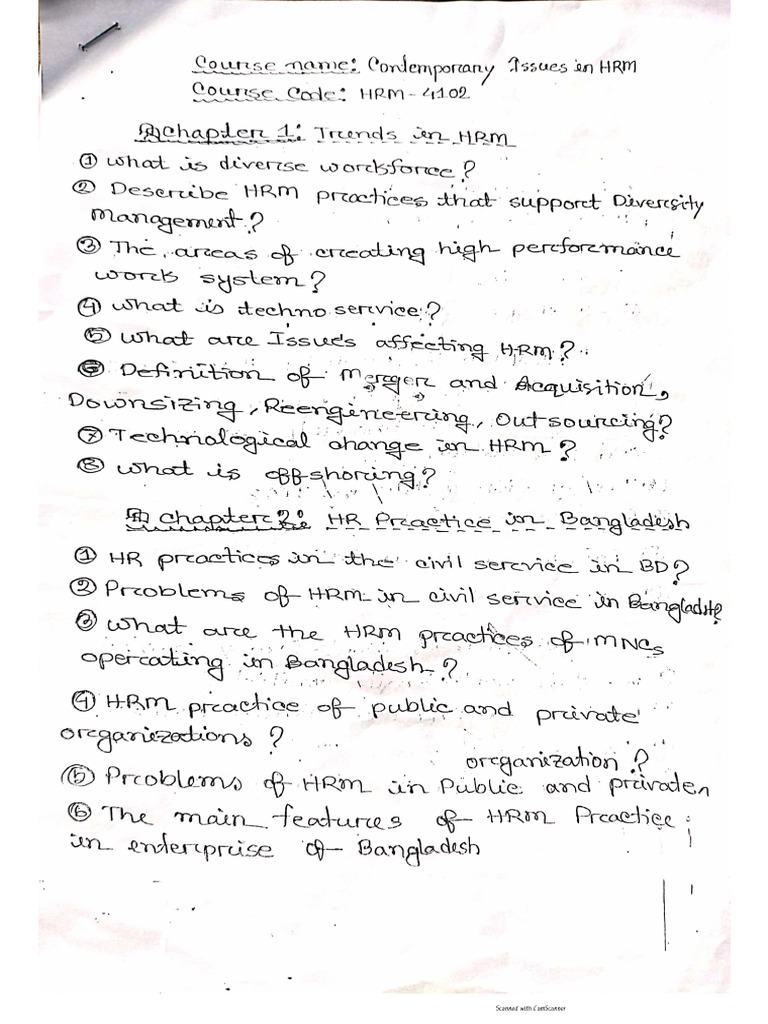 Course name: Contemporary Issues in HRM
Course Code: HRM-4102
Chapter 1: Trends in HRM
① What is diverse workforce?
② Describe HRM practices that support Diversity
management?
③ The areas of creating high performance
work system?
④ What is techno service?
⑤ What are Issues affecting HRM?
⑥ Definition of Merger and Acquisition,
Downsizing, Reengineering, Outsourcing?
⑦ Technological change in HRM?
⑧ What is offshoring?
Chapter 2: HR Practice in Bangladesh
① HR practices in the civil service in BD?
② Problems of HRM in civil service in Bangladesh?
③ What are the HRM practices of MNCs
operating in Bangladesh?
④ HRM practice of public and private
organizations?
organization?
⑤ Problems of HRM in Public and private
⑥ The main features of HRM Practice
in enterprise of Bangladesh
Scanned with CamScanner